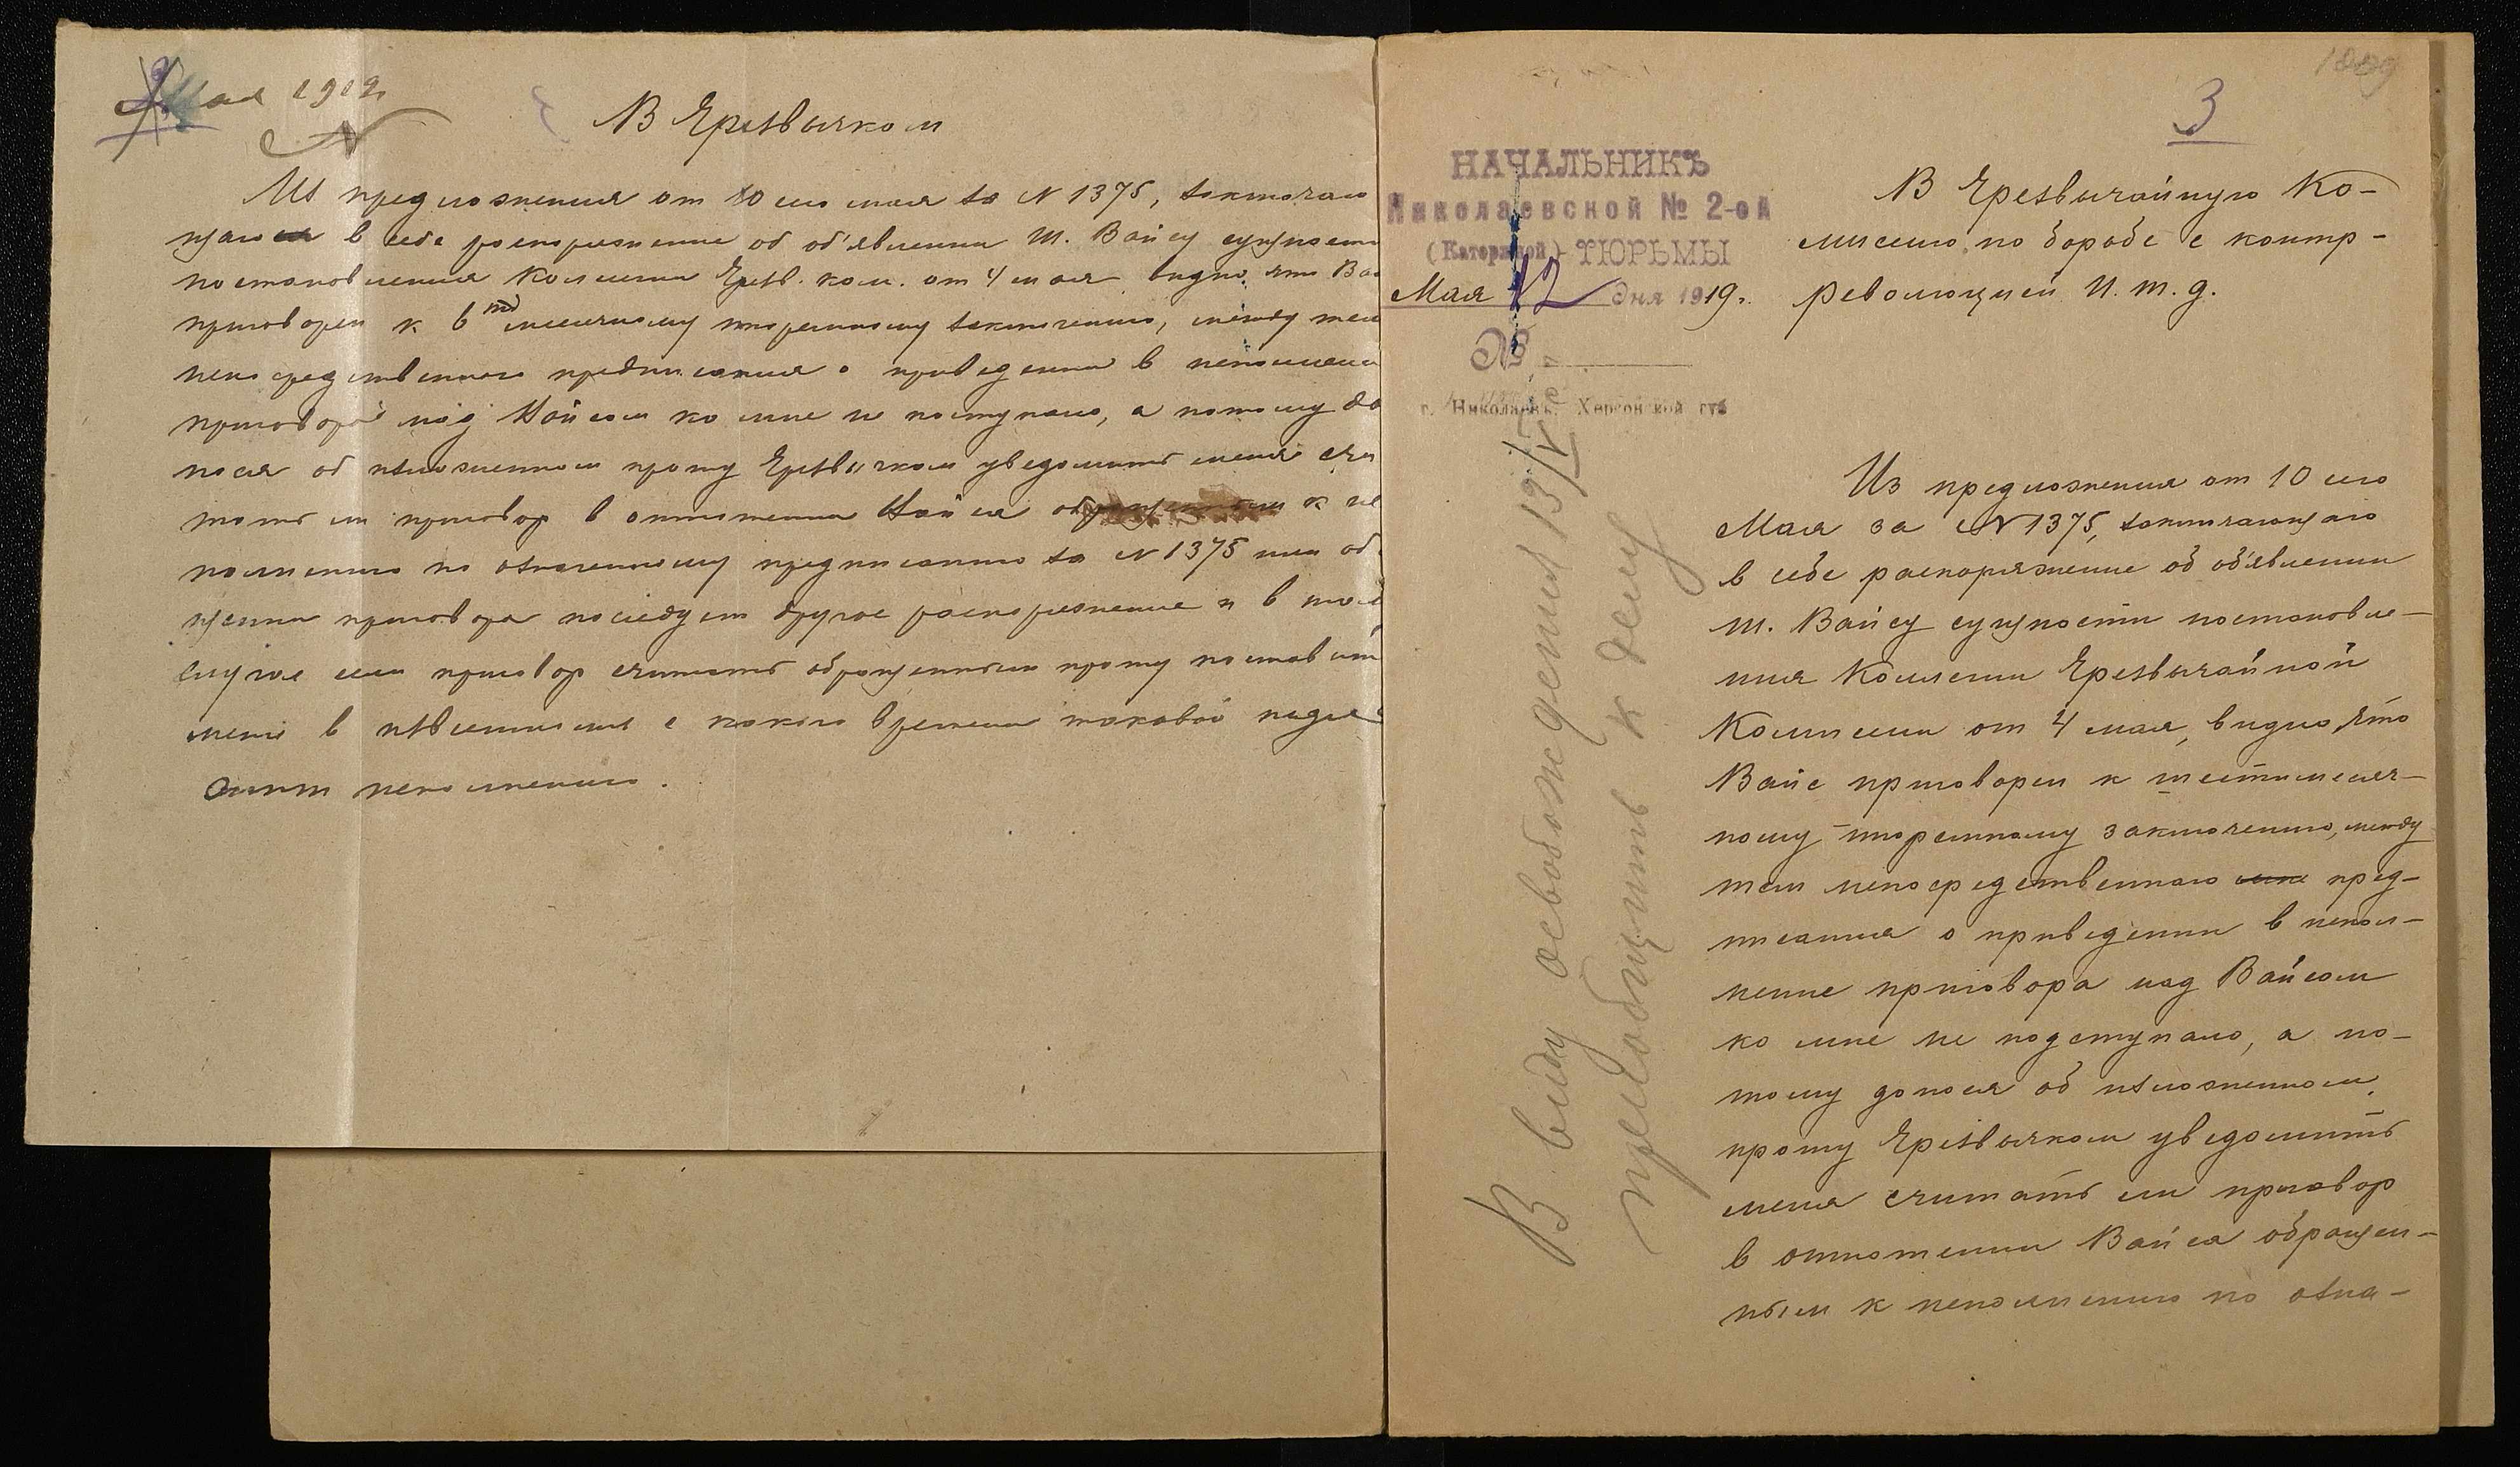 Мая 1919
N
В Чрезвычком
Из предложения от 10 сего мая за N 1375, заключаю
щаго в себе распоряжение об об'явлении Ш. Вайсу сущности
постановления Коллегии Чрезв. ком. от 4 мая видно, что Ва
приговорен к 6ти месячному тюремному заключению, между тем
непосредственнаго предписания о приведении в исполнени
приговора над Вайсом ко мне не поступало, а потому до
нося об изложенном прошу Чрезвычком уведомить меня счи
тать ли приговор в отношении Вайса обращенным к ис
полнению по означенному предписанию за N 1375 или об
щении приговора последует другое распоряжение и в том
случае если приговор считать обращенным прошу поставить
меня в известность с какого времени таковой подле
жит исполнению.
1009
3
НАЧАЛЬНИКЪ
Николаевской № 2-ой
(Каторжной) ТЮРЬМЫ
Мая 12 дня 1919 г.
№
г. Николаевъ, Херсонской губ
В Чрезвычайную Ко-
мисию по боробе с контр-
революцией И. т. д.
Из предложения от 10 сего
Мая за N 1375, заключающаго
в себе распоряжение об об'явлении
Ш. Вайсу сущности постановле-
ния Коллегии Чрезвычайной
Комиссии от 4 мая, видно, что
Вайс приговорен к шестимесяч-
ному тюремному заключению, между
тем непосредственнаго пред-
писания о приведении в испол-
нение приговора над Вайсом
ко мне не подступало, а по-
тому донося об изложенном,
прошу Чрезвычком уведомить
меня считать ли приговор
в отношении Вайса обращен-
ным к исполнению по озна-
В виду освобождения 13/V
приобщить к делу